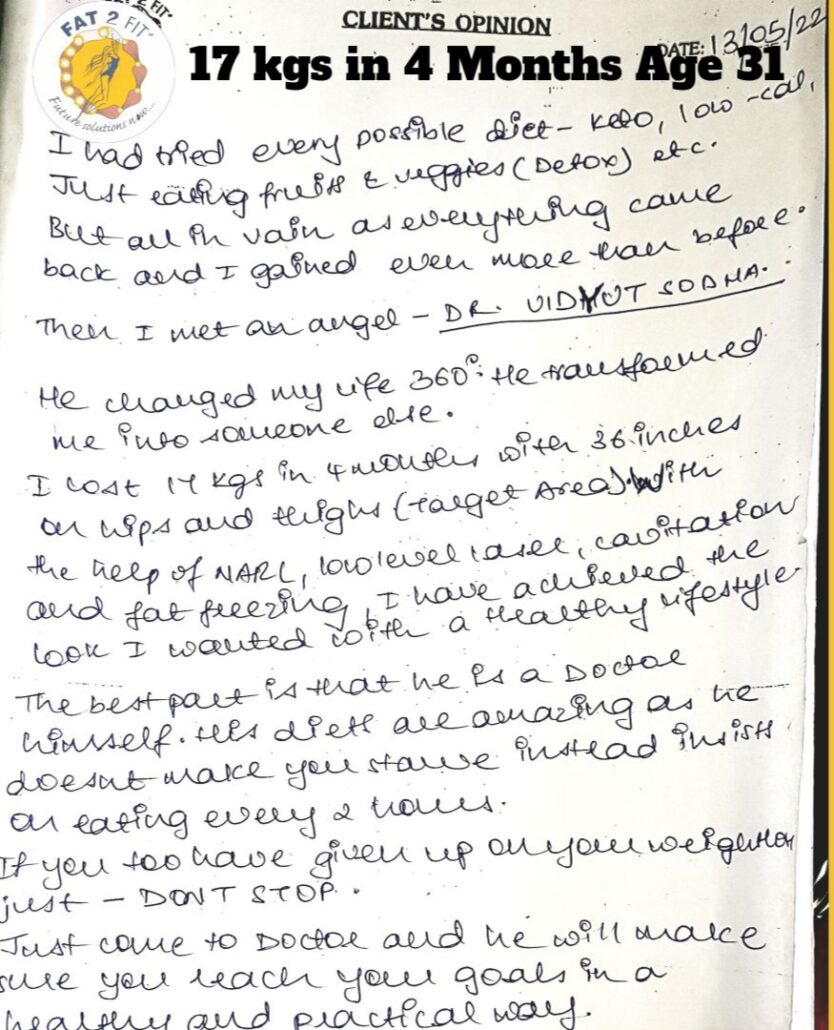 FIT
FAT 2 FIT
Future solutions now....
CLIENT'S OPINION
DATE: 13/05/22
17 kgs in 4 Months Age 31
I had tried every possible diet - Keto, low-cal,
Just eating fruits & veggies (Detox) etc.
But all in vain as everything came
back and I gained even more than before.
Then I met an angel - DR. VIDYUT SODHA.
He changed my life 360°. He transformed
me into someone else.
I lost 17 kgs in 4 months with 36 inches
on hips and thighs (Target Area). With
the help of NARL, low level laser, cavitation
and fat freezing, I have achieved the
look I wanted with a Healthy lifestyle.
The best part is that he is a Doctor
himself. His diets are amazing as he
doesnt make you starve instead insists
on eating every 2 hours.
If you too have given up on your
just - DONT STOP.
Just come to Doctor and he will make
sure you reach your goals in a
healthy and practical way.